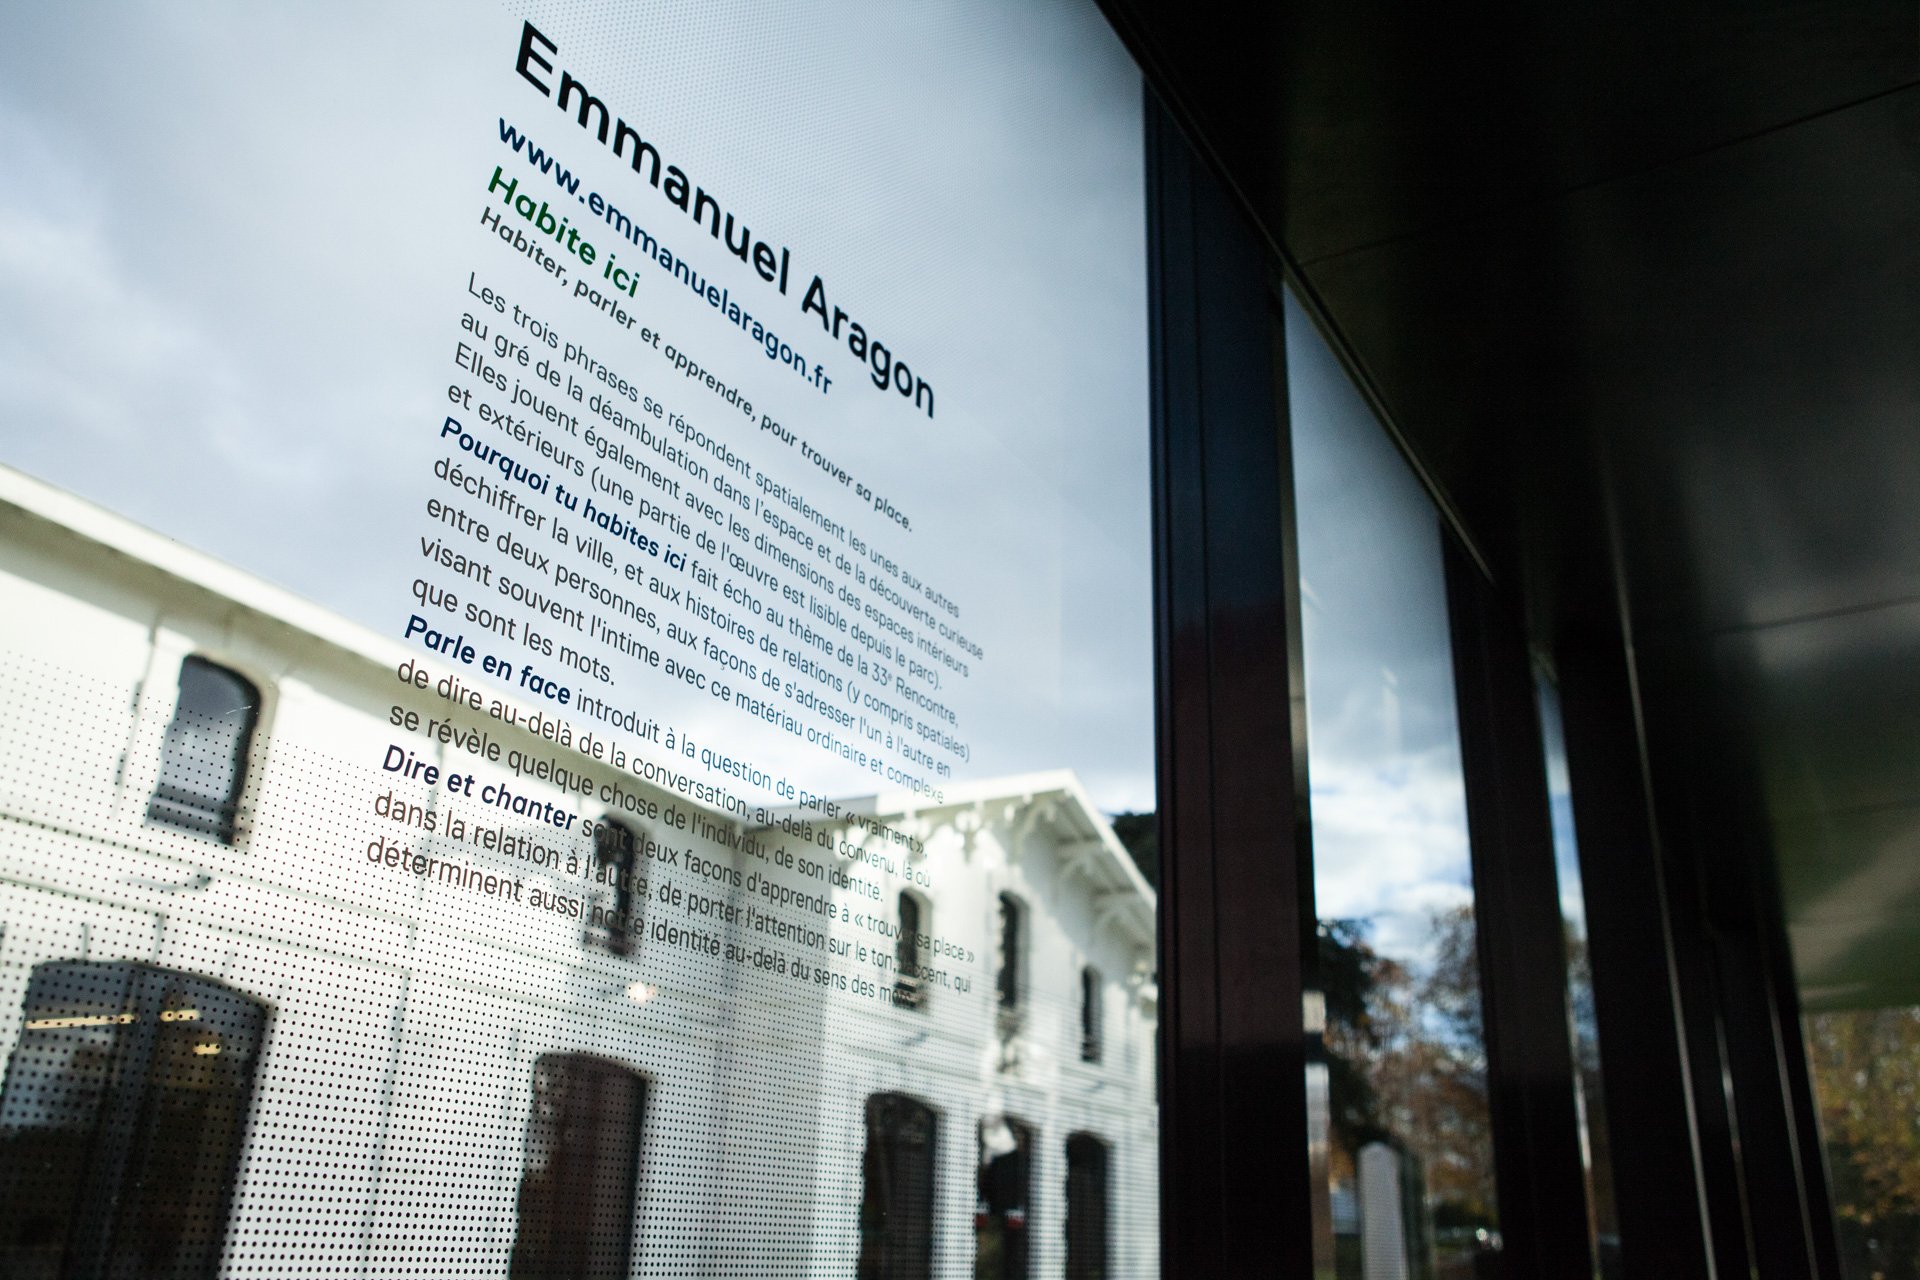 Emmanuel Aragon
www.emmanuelaragon.fr
Habite ici
Habiter, parler et apprendre, pour trouver sa place.
Les trois phrases se répondent spatialement les unes aux autres
au gré de la déambulation dans l'espace et de la découverte curieuse
Elles jouent également avec les dimensions des espaces intérieurs
et extérieurs (une partie de l'œuvre est lisible depuis le parc).
Pourquoi tu habites ici fait écho au thème de la 33e Rencontre,
déchiffrer la ville, et aux histoires de relations (y compris spatiales)
entre deux personnes, aux façons de s'adresser l'un à l'autre en
visant souvent l'intime avec ce matériau ordinaire et complexe
que sont les mots.
Parle en face introduit à la question de parler « vraiment »,
de dire au-delà de la conversation, au-delà du convenu, là où
se révèle quelque chose de l'individu, de son identité.
Dire et chanter sont deux façons d'apprendre à « trouver sa place »
dans la relation à l'autre, de porter l'attention sur le ton, l'accent, qui
déterminent aussi notre identité au-delà du sens des mots.